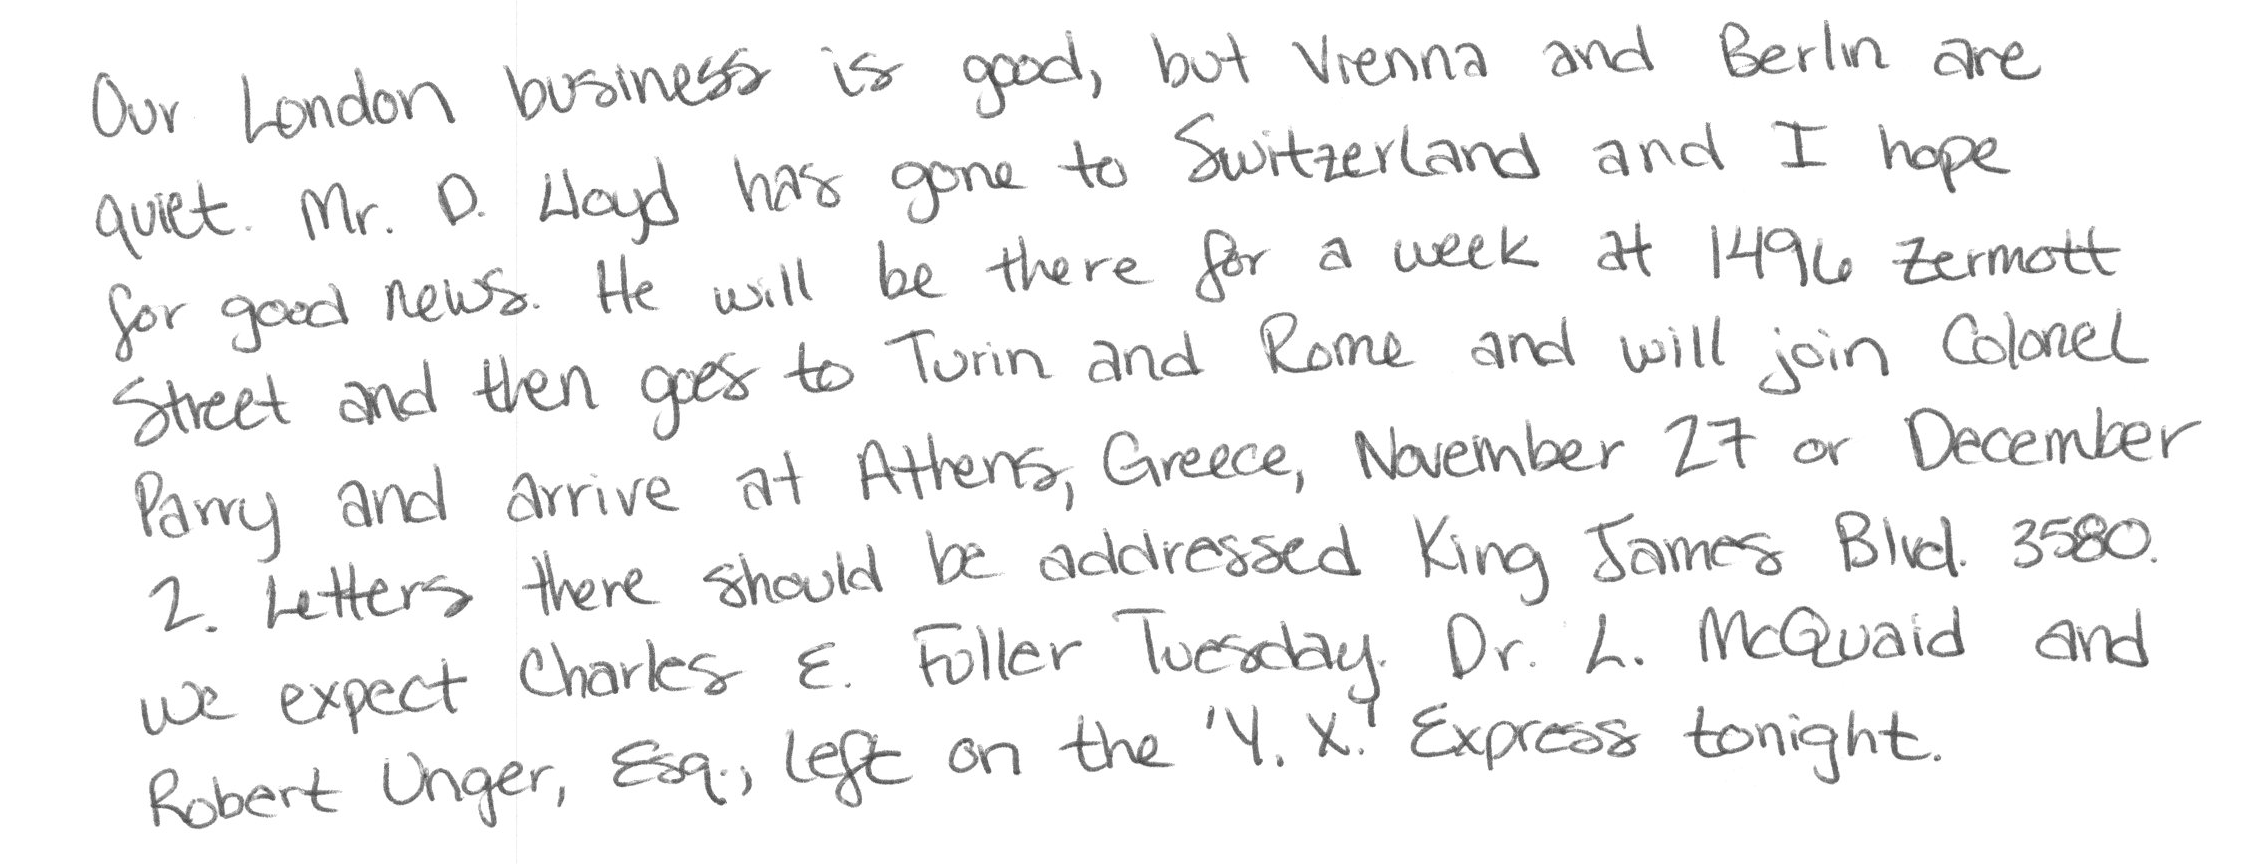 Our London business is good, but Vienna and Berlin are
quiet. Mr. D. Lloyd has gone to Switzerland and I hope
for good news. He will be there for a week at 1496 Zermott
Street and then goes to Turin and Rome and will join Colonel
Parry and arrive at Athens, Greece, November 27 or December
2. Letters there should be addressed King James Blvd. 3580.
we expect Charles E. Fuller Tuesday. Dr. L. McQuaid and
Robert Unger, Esq., left on the 'Y. X.' Express tonight.